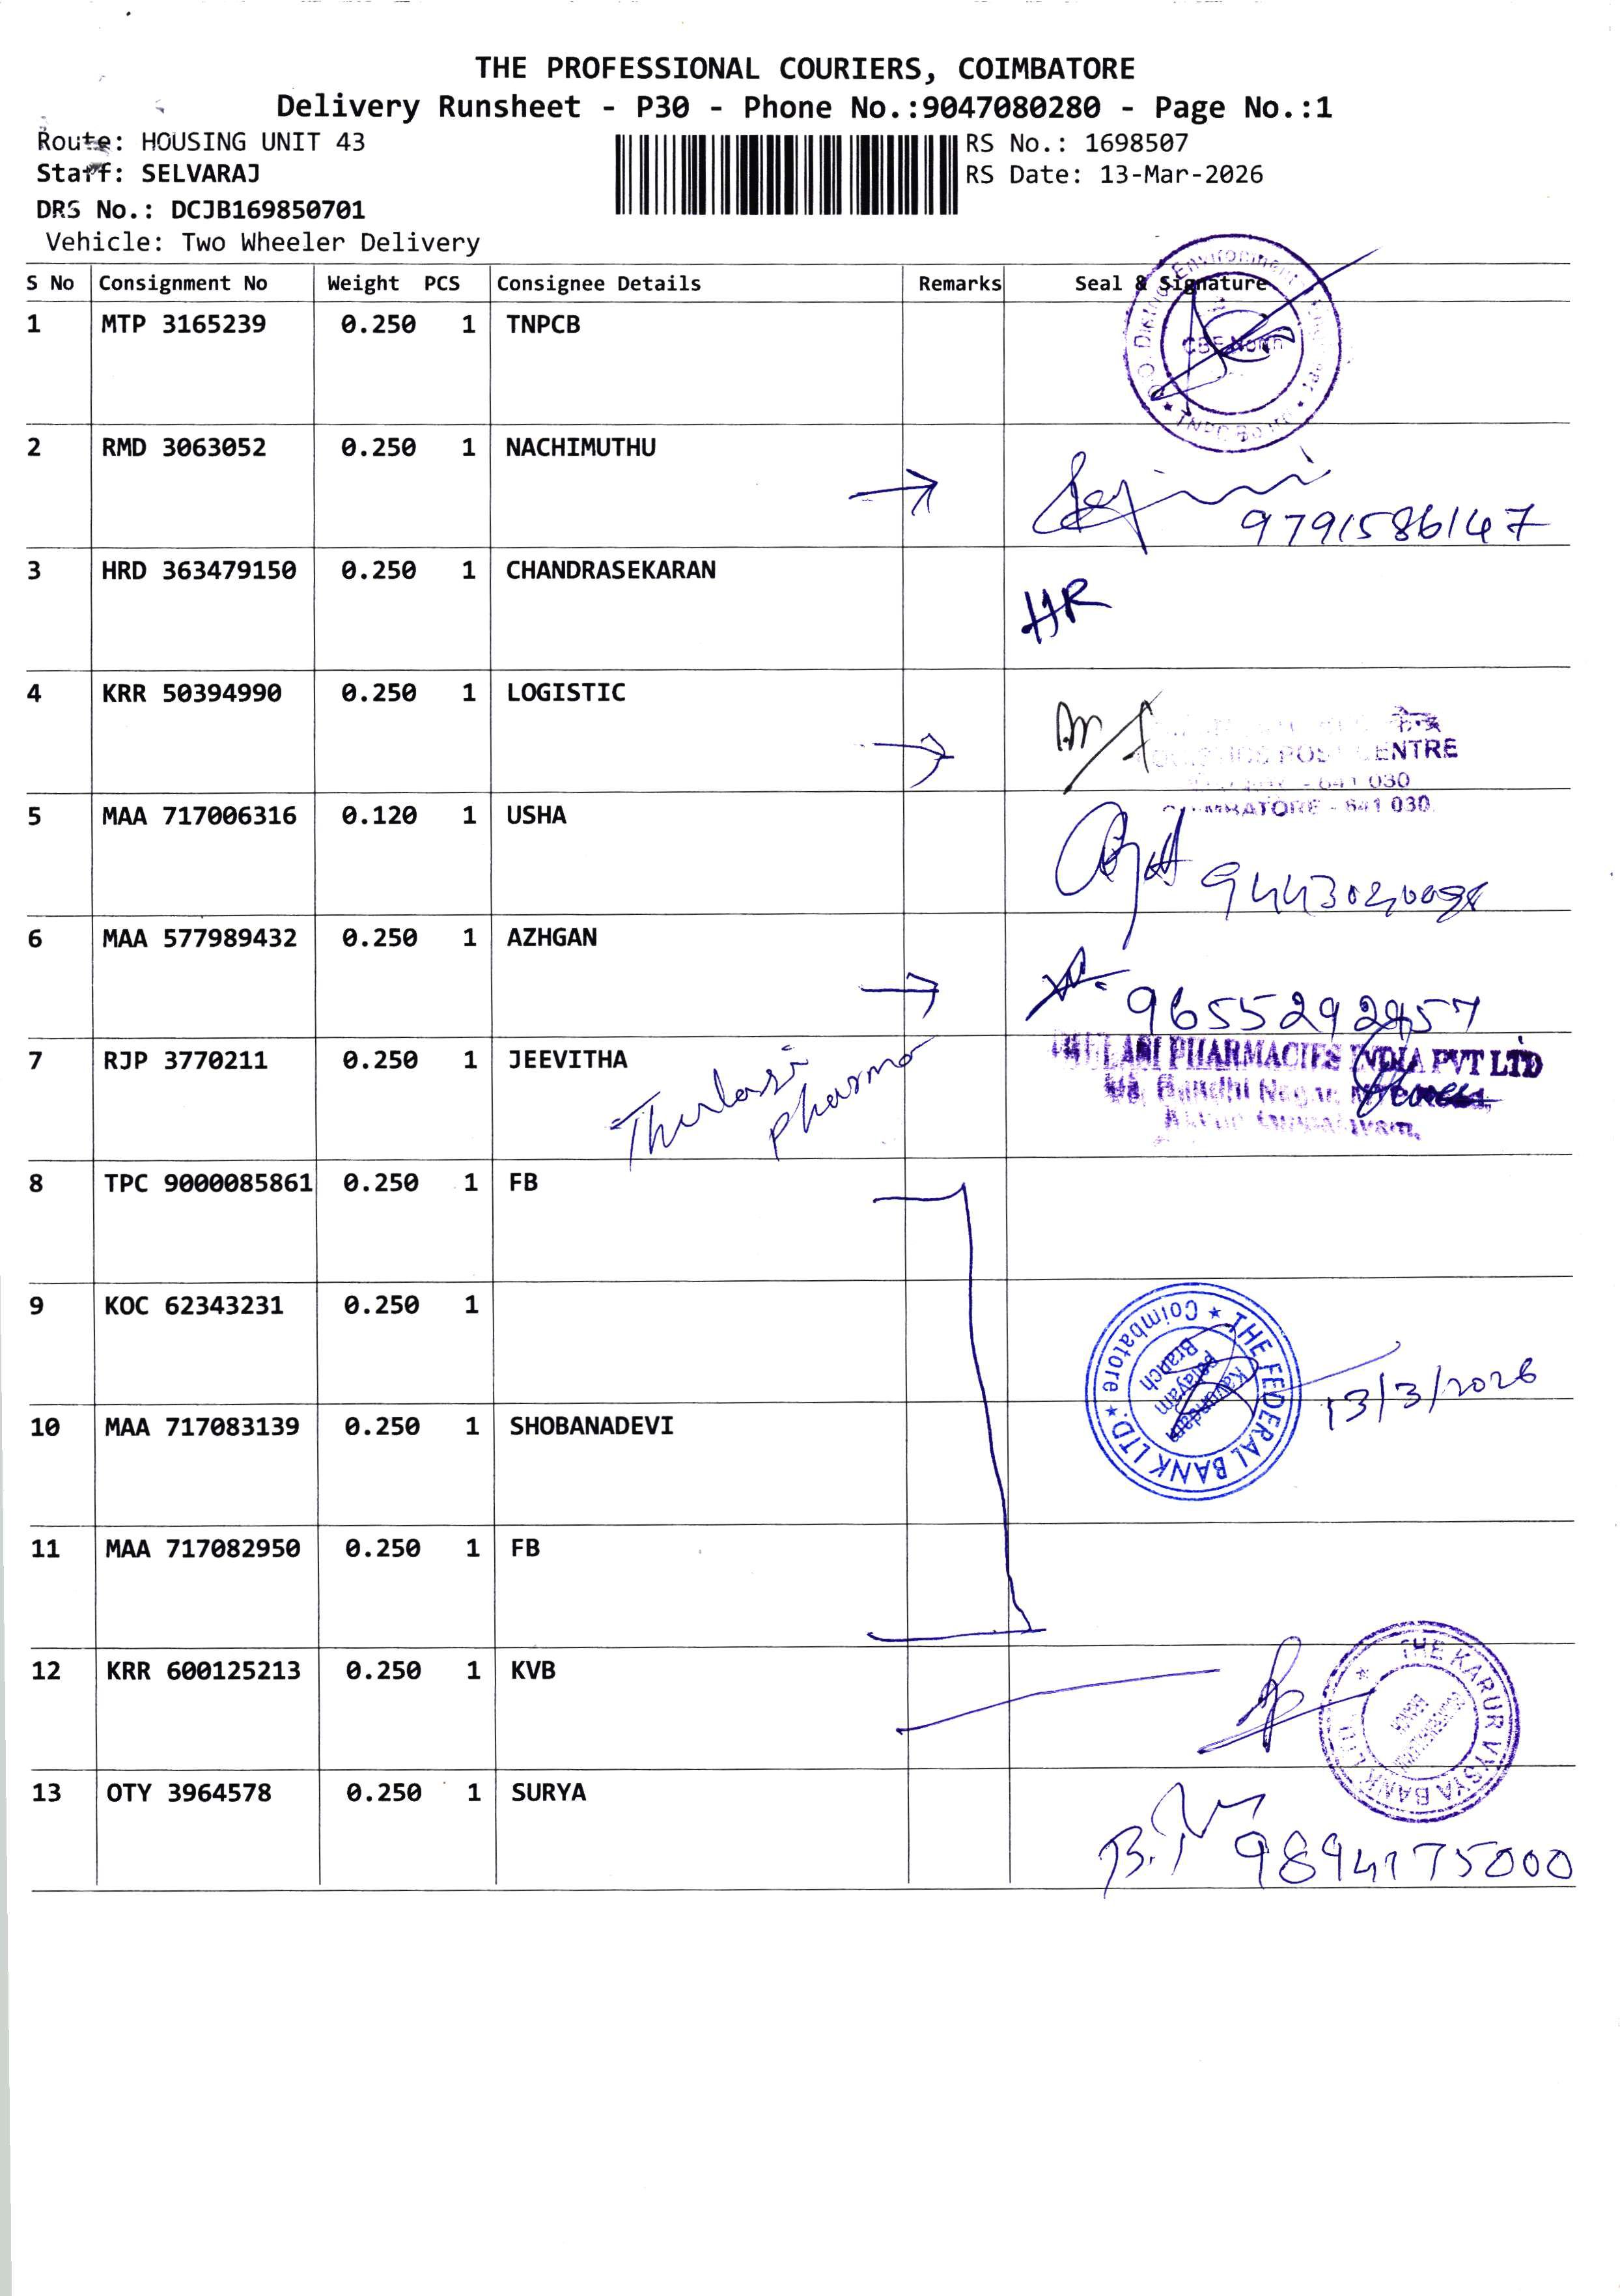 THE PROFESSIONAL COURIERS, COIMBATORE
Delivery Runsheet - P30 - Phone No.:9047080280 - Page No.:1
Route: HOUSING UNIT 43
RS No.: 1698507
Staff: SELVARAJ
RS Date: 13-Mar-2026
DRS No.: DCJB169850701
Vehicle: Two Wheeler Delivery
S No Consignment No Weight PCS Consignee Details Remarks Seal & Signature
1 MTP 3165239 0.250 1 TNPCB
CBE North
2 RMD 3063052 0.250 1 NACHIMUTHU
9791586147
3 HRD 363479150 0.250 1 CHANDRASEKARAN
HR
4 KRR 50394990 0.250 1 LOGISTIC
CENTRE
641 030
COIMBATORE - 641 030.
5 MAA 717006316 0.120 1 USHA
6 MAA 577989432 0.250 1 AZHGAN
7 RJP 3770211 0.250 1 JEEVITHA
Thulasi
pharma
PHARMACIES INDIA PVT LTD
Gandhi Nagar
8 TPC 9000085861 0.250 1 FB
9 KOC 62343231 0.250 1
THE FEDERAL BANK LTD. * Coimbatore *
Kavundam
palayam
Branch
13/3/2026
10 MAA 717083139 0.250 1 SHOBANADEVI
11 MAA 717082950 0.250 1 FB
12 KRR 600125213 0.250 1 KVB
THE KARUR VYSYA BANK LTD
13 OTY 3964578 0.250 1 SURYA
9894175000